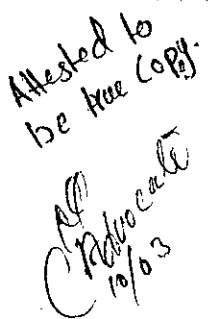 Attested to
be true Copy.
Advocate
10/03